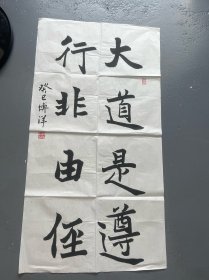 大道是遵
行非由径
癸巳博洋